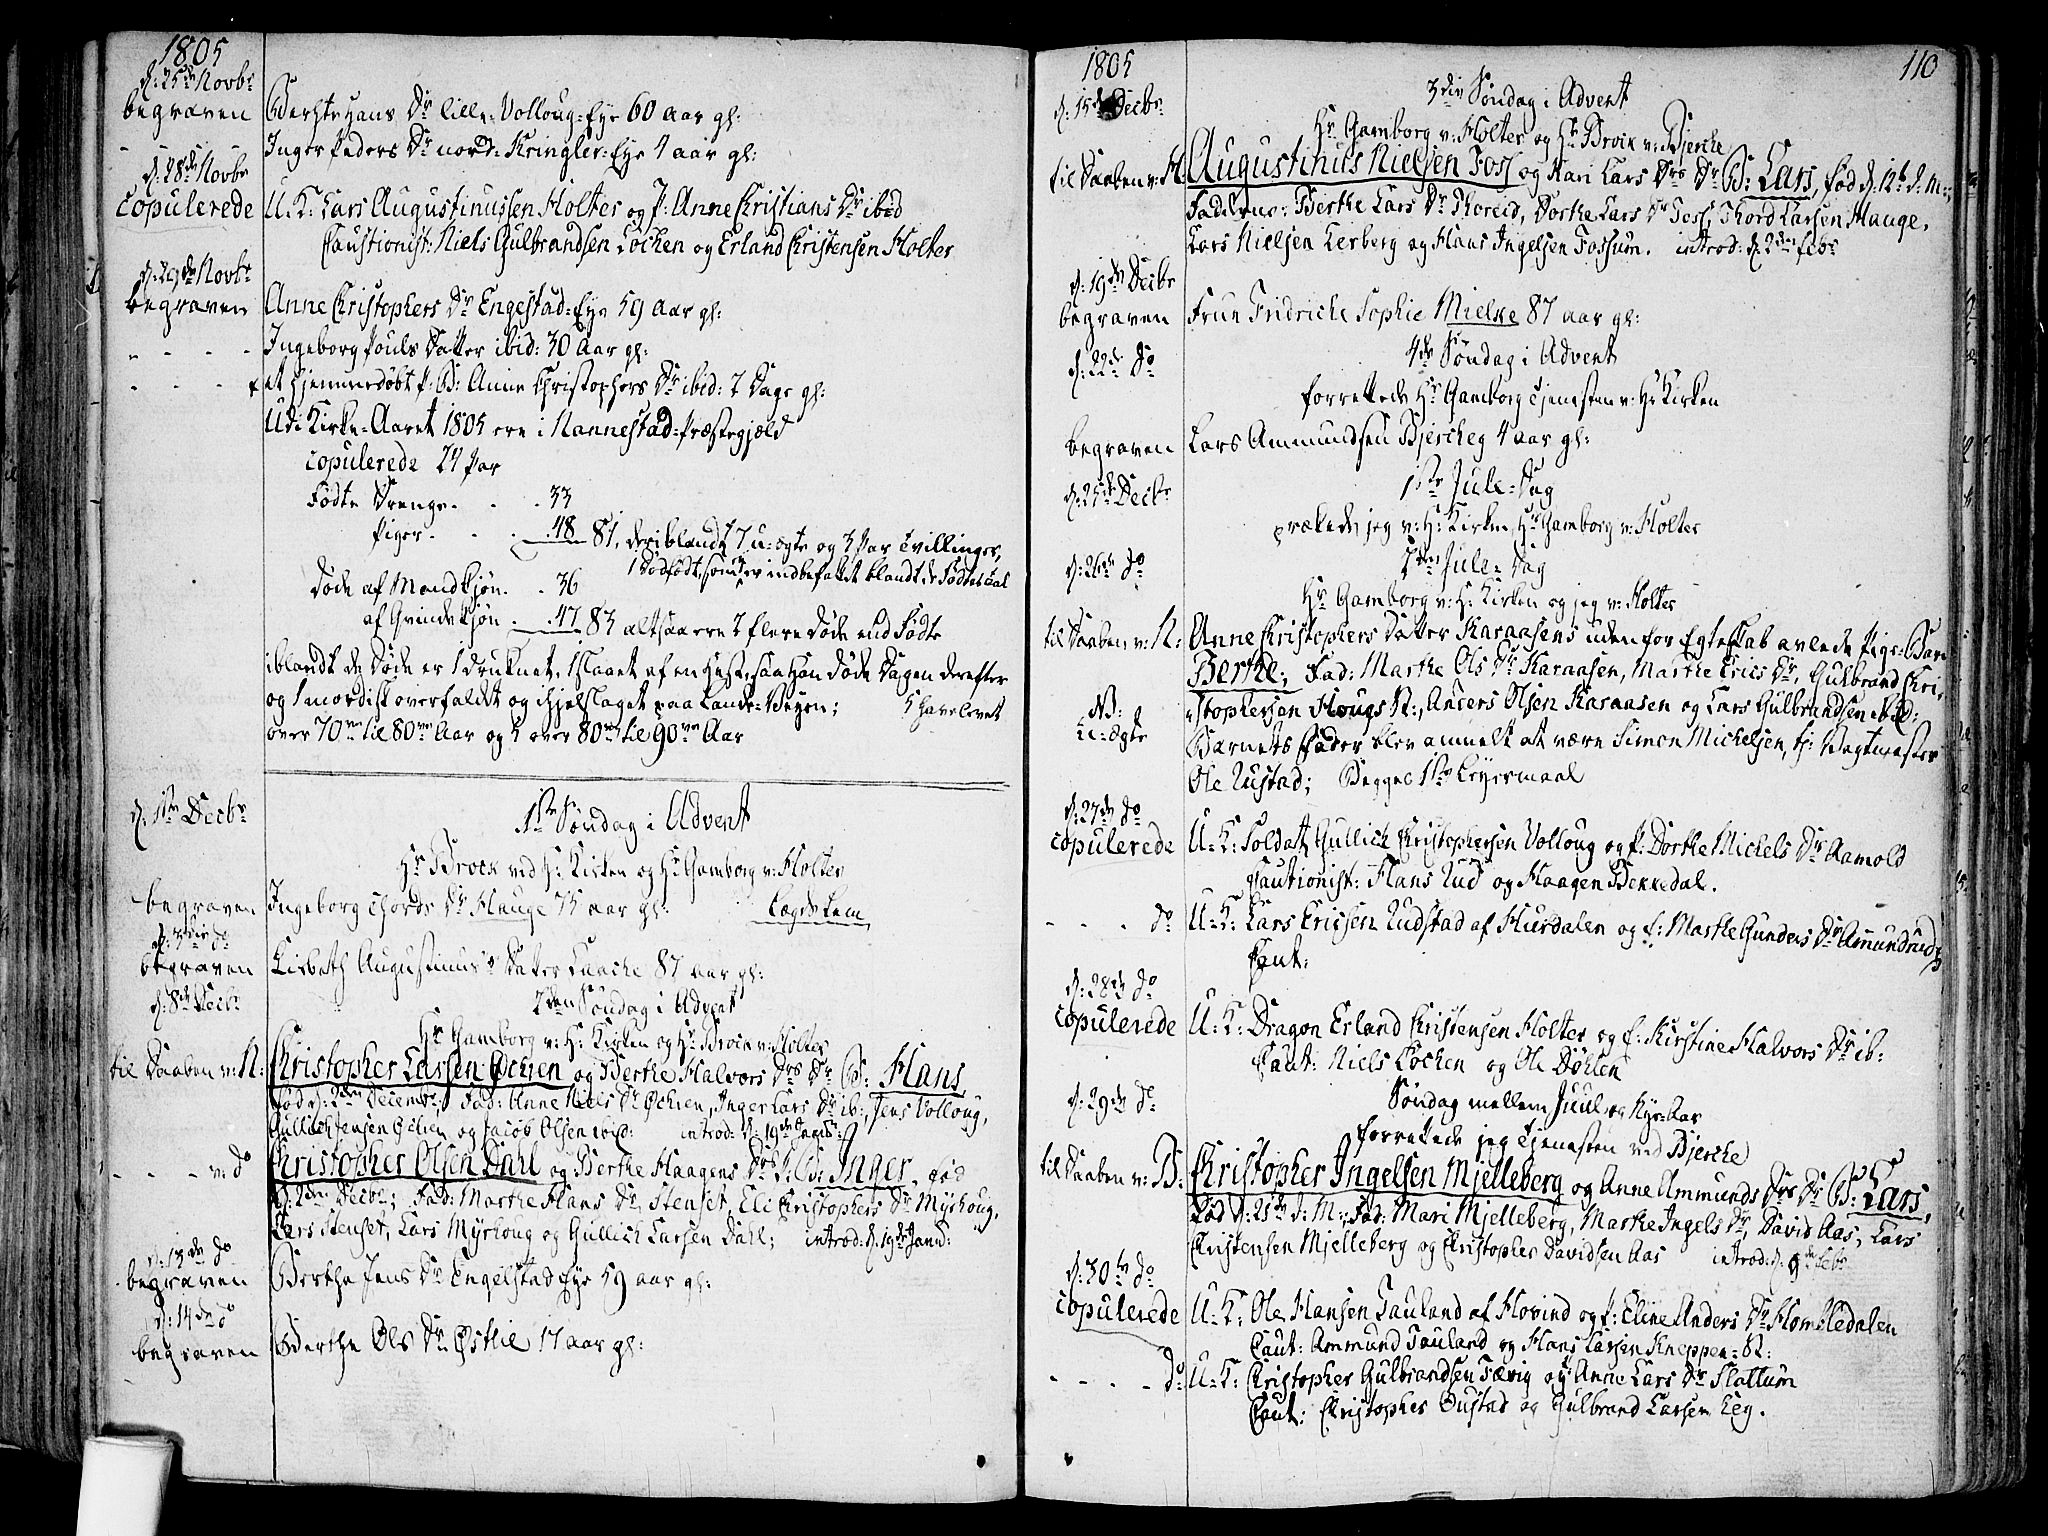 1805
d: 25de Novbr
begraven Berthe Hans Dr lille Volloug-Eye 60 aar gl:
- Inger Peders Dr nord: Kringler-Eye 4 aar gl:
d: 28de Novbr
copulerede U: K: Lars Augustinussen Holter og P: Anne Christians Dr ibid
Caustionist: Niels Gulbrandsen Løchen og Erland Christensen Holter
d: 29de Novbr
begraven Anne Christophers Dr Engestad-Eye 59 aar gl:
- - - - Ingeborg Pouls Datter ibid: 30 Aar gl:
- - - et hjemmedøbt P: B: Anne Christophers Dr ibid: 2 Dage gl:
Udi Kirke-Aaret 1805 ere i Nannestad-Præstegjæld
copulerede 24 Par
Fødte Drenge. . . 33
Piger. . . . 48 81, deriblandt 7 u-ægte og 3 Par Tvillinger,
1 Dødfødt, som ei er indbefattet blandt de Fødtes Tal
Døde af Mandkjøn. . 36
af Qvindekjøn . . 47 83 altsaa ere 2 flere Døde end Fødte
iblandt de Døde er 1 druknet, 1 slaaet af en Hest, saa Han døde Dagen derefter
og 1 mordisk overfaldet og ihjelslaget paa Lande-Veyen; 5 have levet
over 70ve til 80ve Aar og 3 over 80ve til 90ve Aar
d: 1ste Decbr 1ste Søndag i Advent
Hr Brock ved H: Kirken og Hr Gamborg v: Holter
begraven Ingeborg Thords Dr Hauge 75 aar gl: Lægds Lem
d: 3die do
begraven Lisbeth Augustinus Datter Laache 87 aar gl:
d: 8de Decbr 2den Søndag i Advent
Hr Gamborg v: H: Kirken og Hr Brock v: Holter
til Daaben v: N: Christopher Larsen Øchern og Berthe Halvors Drs Dr B: Hans
fød d: 2den Decembr; Fad: Anne Niels Dr Øchern, Inger Lars Dr ib:, Jens Volloug,
Gullich Jensen Echern og Jacob Olsen ibid: introd: d: 19de Janr:
- - - - v: do Christopher Olsen Dahl og Berthe Haagens Drs P: B: Inger, fød
d: 2den Decbr; Fad: Marthe Hans Dr Stenset, Eli Christophers Dr Myrhoug,
Lars Stenset, Lars Myrhoug og Gullich Larsen Dahl; introd: d: 19de Janr:
d: 13de do
begraven Berthe Jens Dr Engelstad Eye 59 aar gl:
d: 14de do
begraven Berthe Ols Dr Østlie 17 aar gl:
1805 110
d: 15de Decbr 3die Søndag i Advent
Hr Gamborg v: Holter og Hr Brock v: Bjercke
til Daaben v: H: Augustinus Nielsen Foss og Kari Lars Drs Dr B: Lars, fød d: 12te d: M:,
Fadderne: Berthe Lars Dr Thoreid, Dorthe Lars Dr Foss, Thord Larsen Hauge,
Lars Nielsen Lerberg og Hans Ingelsen Fossum. introd: d: 2den Febr
d: 19de Decbr
begraven Frue Fridriche Sophie Mielke 87 aar gl:
d: 22de do 4de Søndag i Advent
forrettede Hr Gamborg Tjenesten v: H: Kirken
begraven Lars Ammundsen Bjercheg 4 aar gl:
d: 25de Decbr 1ste Jule-Dag
prækede jeg v: H: Kirken Hr Gamborg v: Holter
d: 26de do 2den Jule-Dag
Hr Gamborg v: H: Kirken og jeg v: Holter
til Daaben v: N: Anne Christophers Datter Karaasens uden for Egteskab avlede Pige-Barn
Berthe; Fad: Marthe Ols Dr Karaasen, Marthe Erics Dr, Gulbrand Chri-
NB: stophersen Hougs R:, Anders Olsen Karaasen og Lars Gulbrandsen ibid:
U-ægte Barnets Fader blev anmelt at være Simon Michelsen, tj: Vagtmester
Ole Rustad; Begges 1ste Leyermaal
d: 27de do
copulerede U: K: Soldat Gullich Christophersen Volloug og P: Dorthe Michels Dr Aamold
Cautionist: Hans Rud og Haagen Bekkedal.
- - - do U: K: Lars Ericsen Rudstad af Hurdalen og E: Marthe Gunders Dr Amundrud
Caut:
d: 28de do
copulerede U: K: Dragon Erland Christensen Holter og E: Kirstine Halvors Dr ib:
Caut: Niels Løchen og Ole Døhlen
d: 29de do Søndag mellem Juul og Nyt-Aar
forrettede jeg Tjenesten ved Bjercke
til Daaben v: B: Christopher Ingelsen Mjelleberg og Anne Ammunds Drs Dr B: Lars,
fød d: 25de d: M:; Fad: Mari Mjelleberg, Marthe Ingels Dr, David Aas, Lars
Christensen Mjelleberg og Christopher Davidsen Aas introd: d: 9de Febr
d: 30te do
copulerede U: K: Ole Hansen Tauland af Hovind og P: Eline Anders Dr Homledalen
Caut: Ammund Tauland og Hans Larsen Kneppen: R:
- - - - do U: K: Christopher Gulbrandsen Tærig og Anne Lars Dr Slattum
Caut: Christopher Oustad og Gulbrand Larsen Eeg.